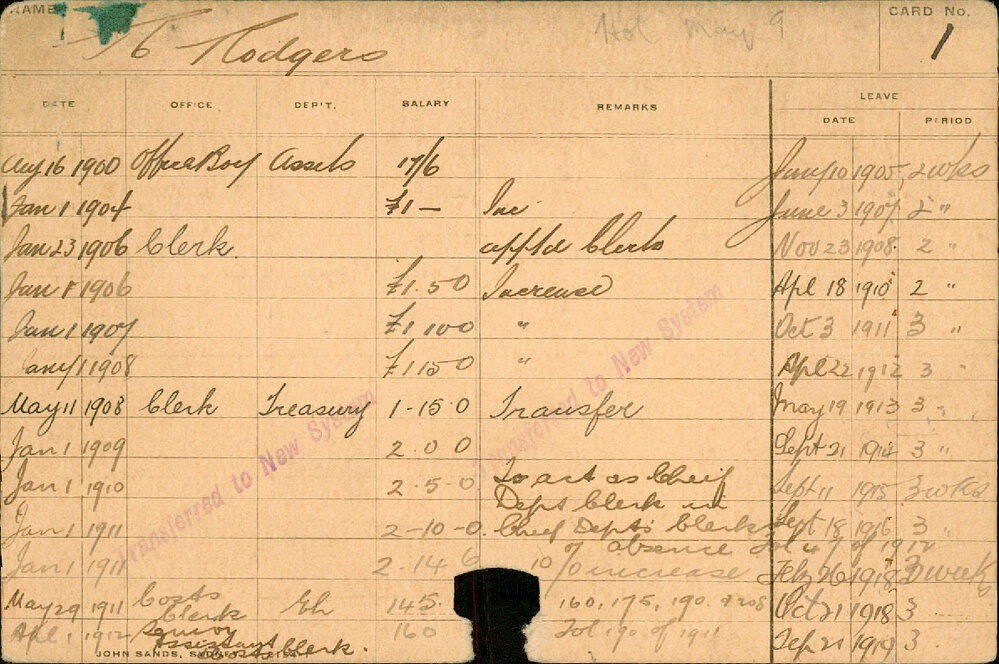 NAME
Hol May 9
CARD No.
T6 Hodgers
1
DATE OFFICE DEP'T. SALARY REMARKS LEAVE
DATE PERIOD
Aug 16 1900 Office Boy Assets 17/6 Jany 10 1905 2 wks
Jan 1 1904 £1 — Inc June 3 1907 2 "
Jan 23 1906 Clerk. app'td Clerk Nov 23 1908 2 "
Jan 1 1906 £1. 5 0 Increase Apl 18 1910 2 "
Jan 1 1907 £1 10 0 " Oct 3 1911 3 "
Jany 1 1908 £1 15 0 " Apl 22 1912 3 "
May 11 1908 Clerk Treasury 1-15 0 Transfer May 19 1913 3 "
Jan 1 1909 2. 0 0 Sept 21 1914 3 "
Jan 1 1910 2. 5 - 0 To act as Chief Sept 11 1915 3 wks
Dept Clerk in
Jan 1 1911 2-10-0. Chief Depts Clerks Sept 18 1916 3 "
absence Fol 47 of 1912
Jan 1 1911 2 - 14 6 10 % increase Feby 26 1918 3 week
May 29 1911 Costs Clerk 145. 160, 175, 190. & 208 Oct 21 1918 3
Apl 1 1912 Senior Assistant Costs Clerk. 160 Fol 190 of 1911 Sep 21 1919 3
JOHN SANDS,
Transferred to New System
Transferred to New System